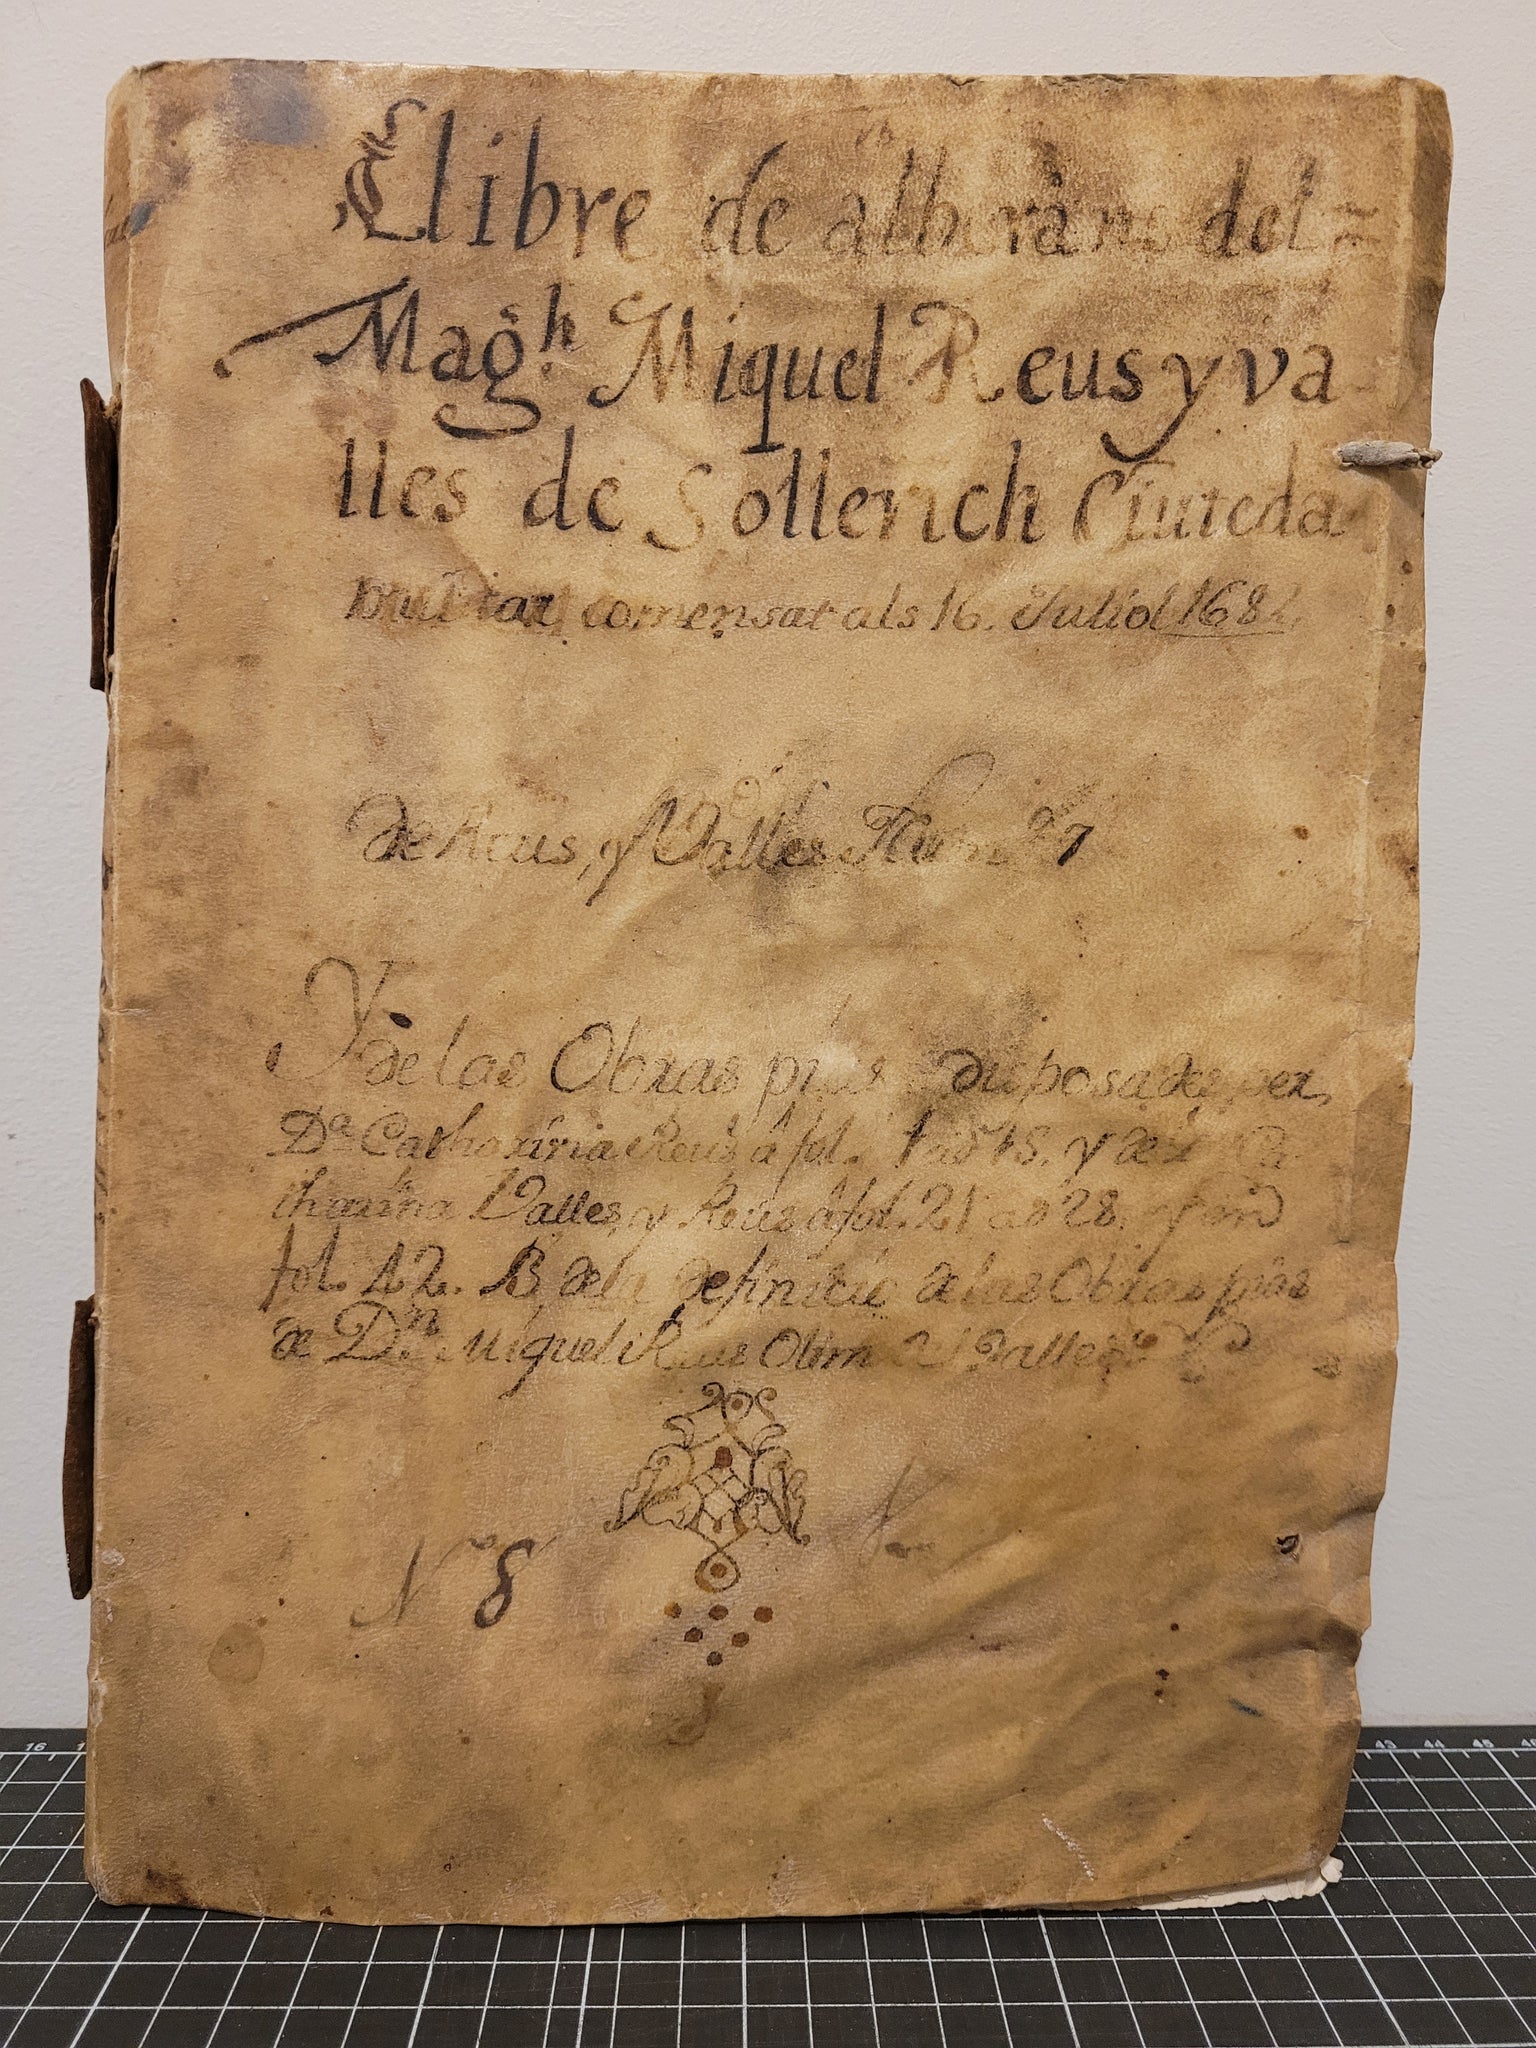 Llibre de albarans del=
Magch. Miquel Reus y va
lles de Sollerich Ciuteda
Militar comensat als 16. Juliol 168
de Reus, y Valles Num
Y de las Obras pias disposades per
Da Catharina Reus â fol. 1 ad 18. y de
tharina Valles, y Reus â fol. 21 ad 28. y en
fol. 42. B de la definicio de las Obras pias
de Dn. Miquel Reus Olim Valles
No 8